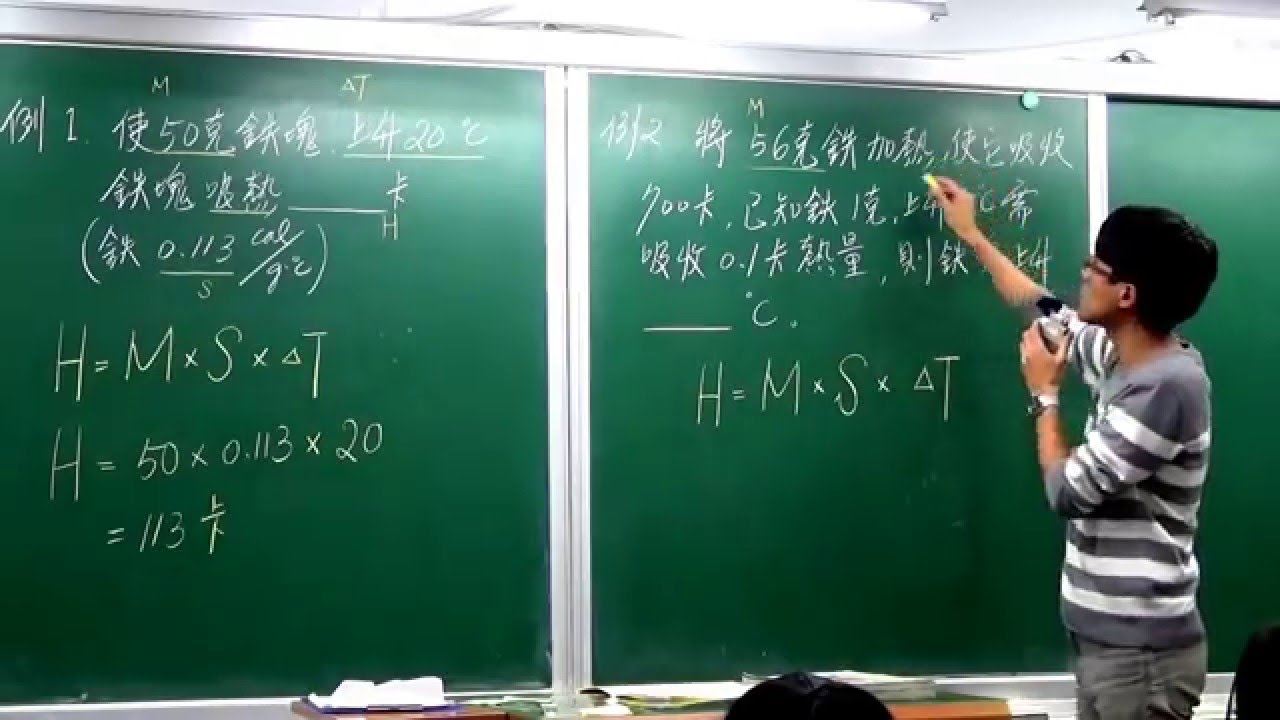 M ΔT
例 1. 使50克鉄塊, 上升20℃
鉄塊吸熱______卡
H
(鉄 0.113 cal/g·℃)
S
H = M × S × ΔT
H = 50 × 0.113 × 20
= 113 卡
M
例2 將 56克鉄加熱,使它吸收
700卡,已知鉄1克,上升 ℃需
吸收0.1卡熱量,則鉄 上升
_____ ℃。
H = M × S × ΔT